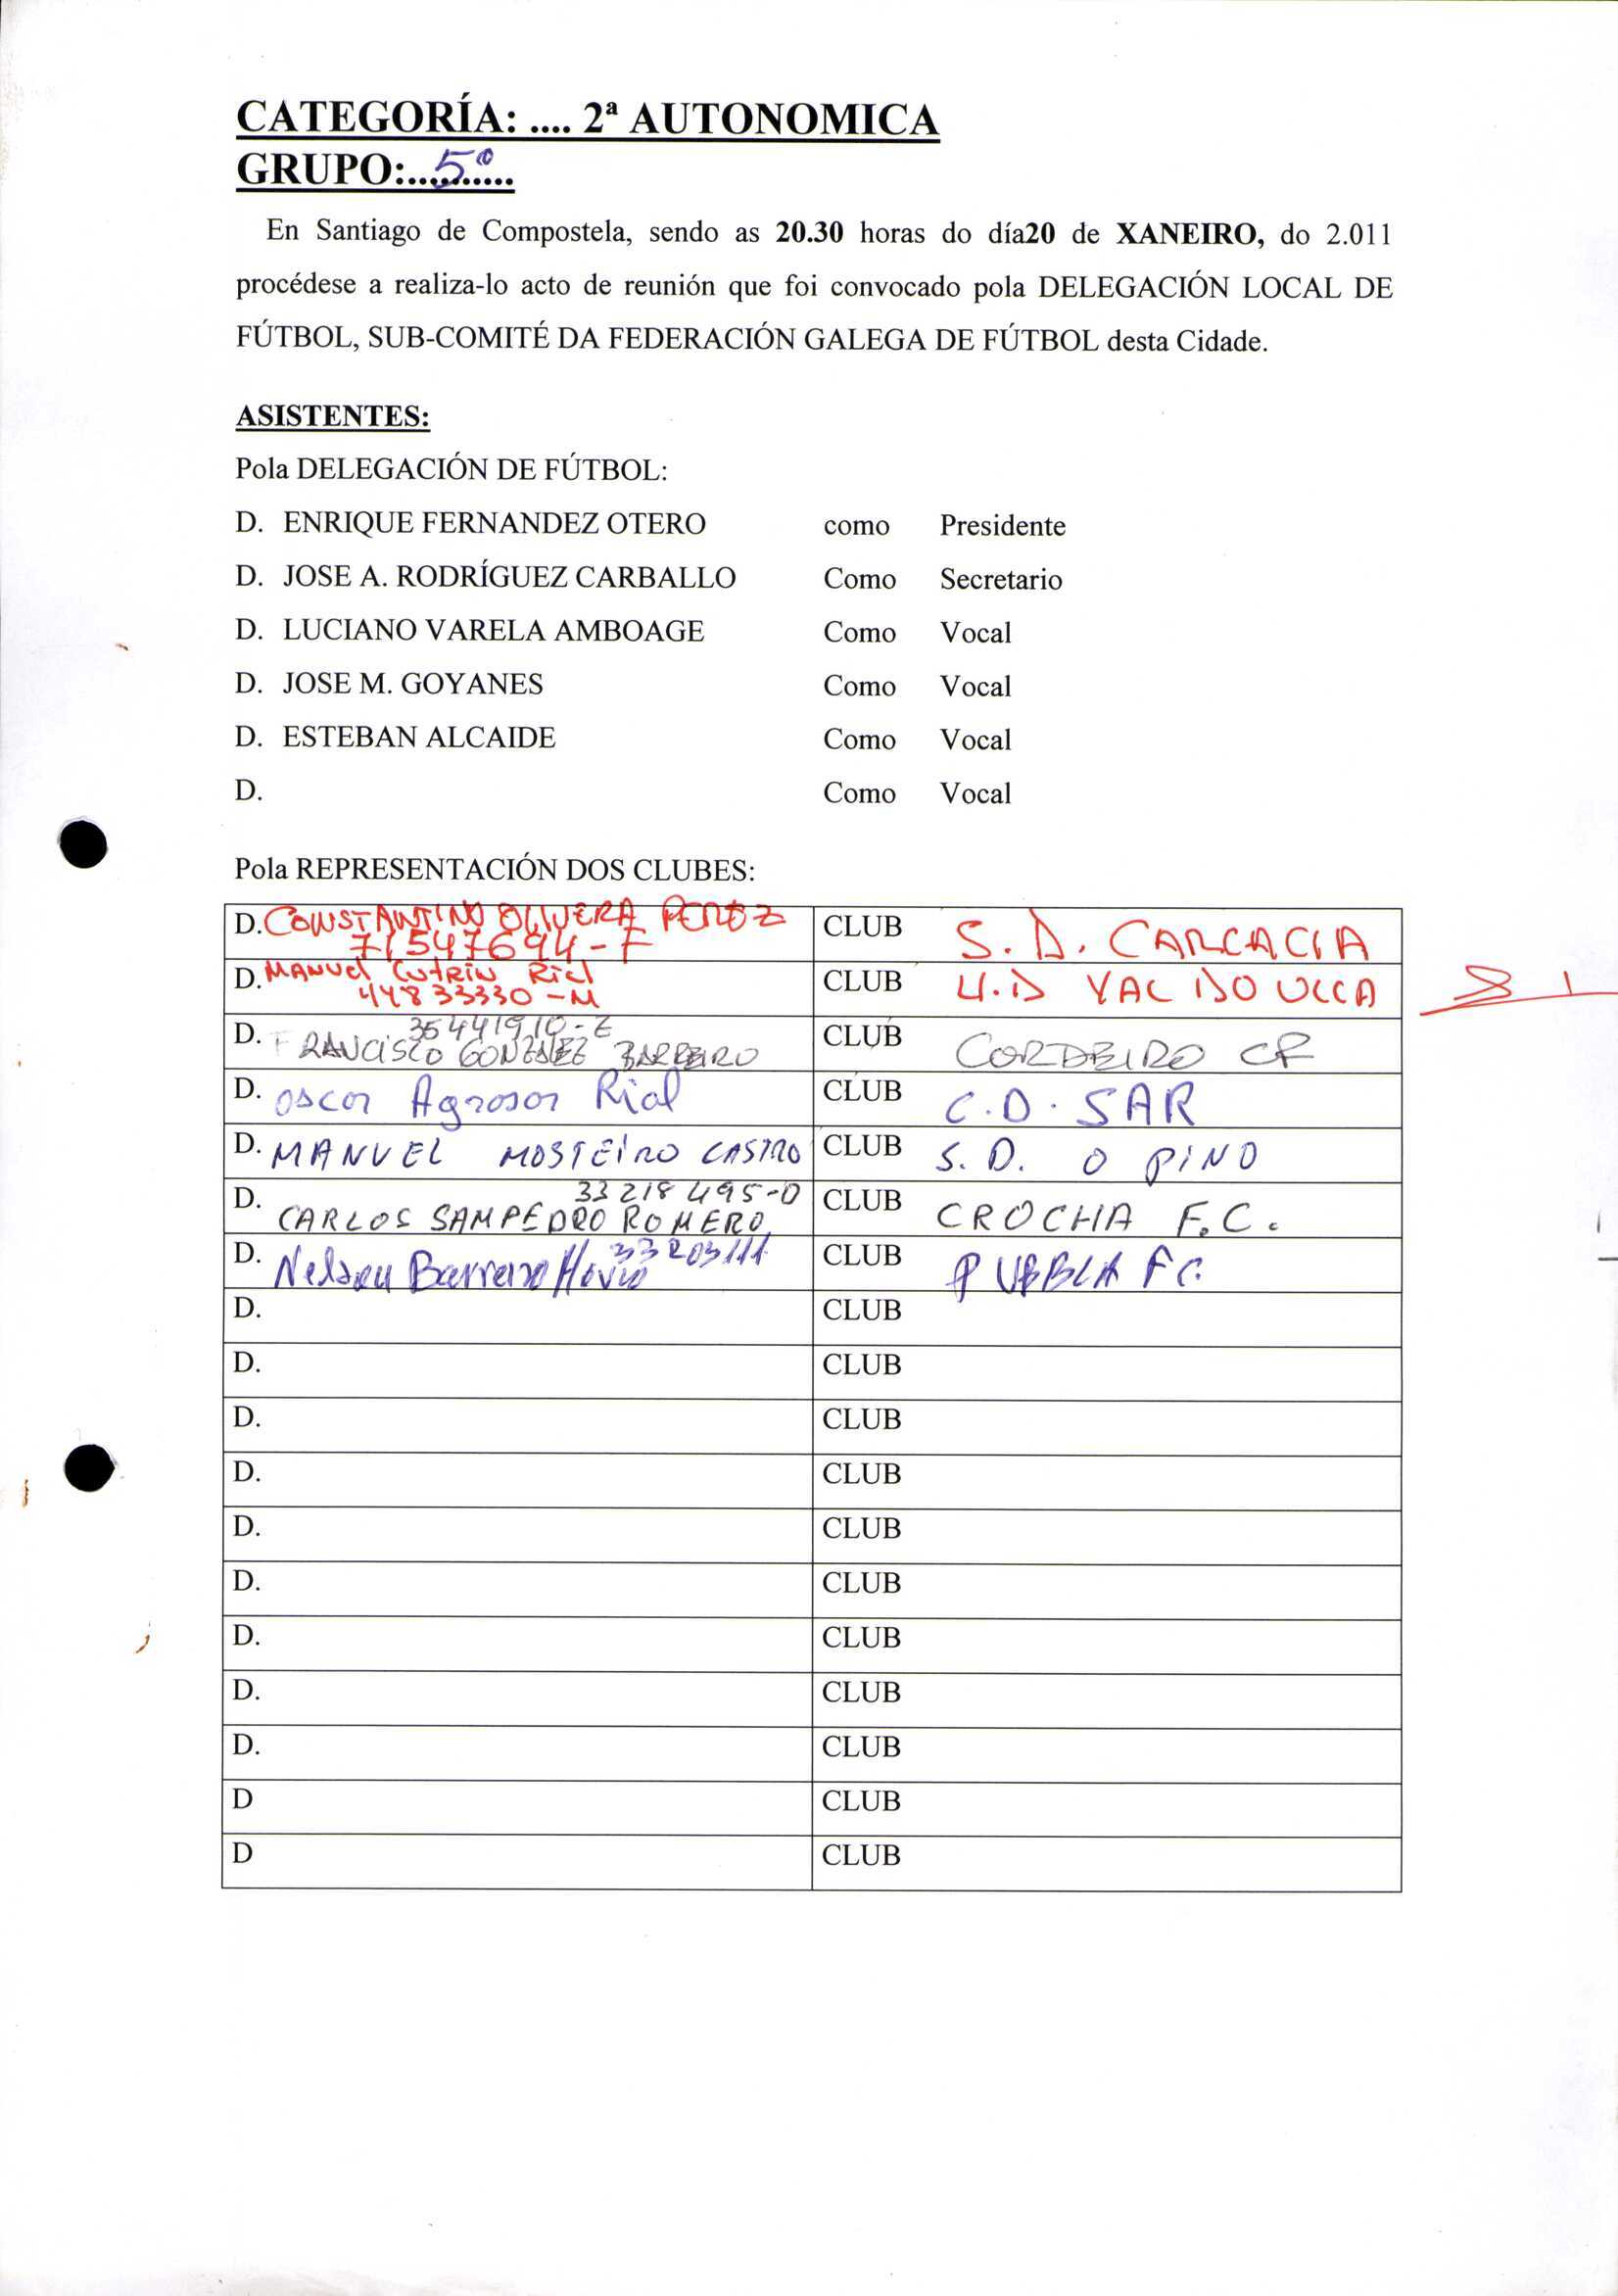 CATEGORÍA: .... 2ª AUTONOMICA
GRUPO:....5º......
En Santiago de Compostela, sendo as 20.30 horas do día20 de XANEIRO, do 2.011
procédese a realiza-lo acto de reunión que foi convocado pola DELEGACIÓN LOCAL DE
FÚTBOL, SUB-COMITÉ DA FEDERACIÓN GALEGA DE FÚTBOL desta Cidade.
ASISTENTES:
Pola DELEGACIÓN DE FÚTBOL:
D. ENRIQUE FERNANDEZ OTERO como Presidente
D. JOSE A. RODRÍGUEZ CARBALLO Como Secretario
D. LUCIANO VARELA AMBOAGE Como Vocal
D. JOSE M. GOYANES Como Vocal
D. ESTEBAN ALCAIDE Como Vocal
D. Como Vocal
Pola REPRESENTACIÓN DOS CLUBES:
D. CONSTANTINO OLIVERA PEREZ CLUB S.D. CARCACIA
71547694-F
D. MANUEL Cutrin Rial CLUB U.D VAL DO ULLA
44833330-M
35441910-E
D. FRANCISCO GONZALEZ BARREIRO CLUB CORDEIRO CF
D. oscar Agrasar Rial CLUB C.D. SAR
D. MANUEL MOSTEIRO CASTRO CLUB S.D. O PINO
33218495-D
D. CARLOS SAMPEDRO ROMERO CLUB CROCHA F.C.
D. Nelson Barreiro 33203111 CLUB PUEBLA FC.
D. CLUB
D. CLUB
D. CLUB
D. CLUB
D. CLUB
D. CLUB
D. CLUB
D. CLUB
D. CLUB
D CLUB
D CLUB